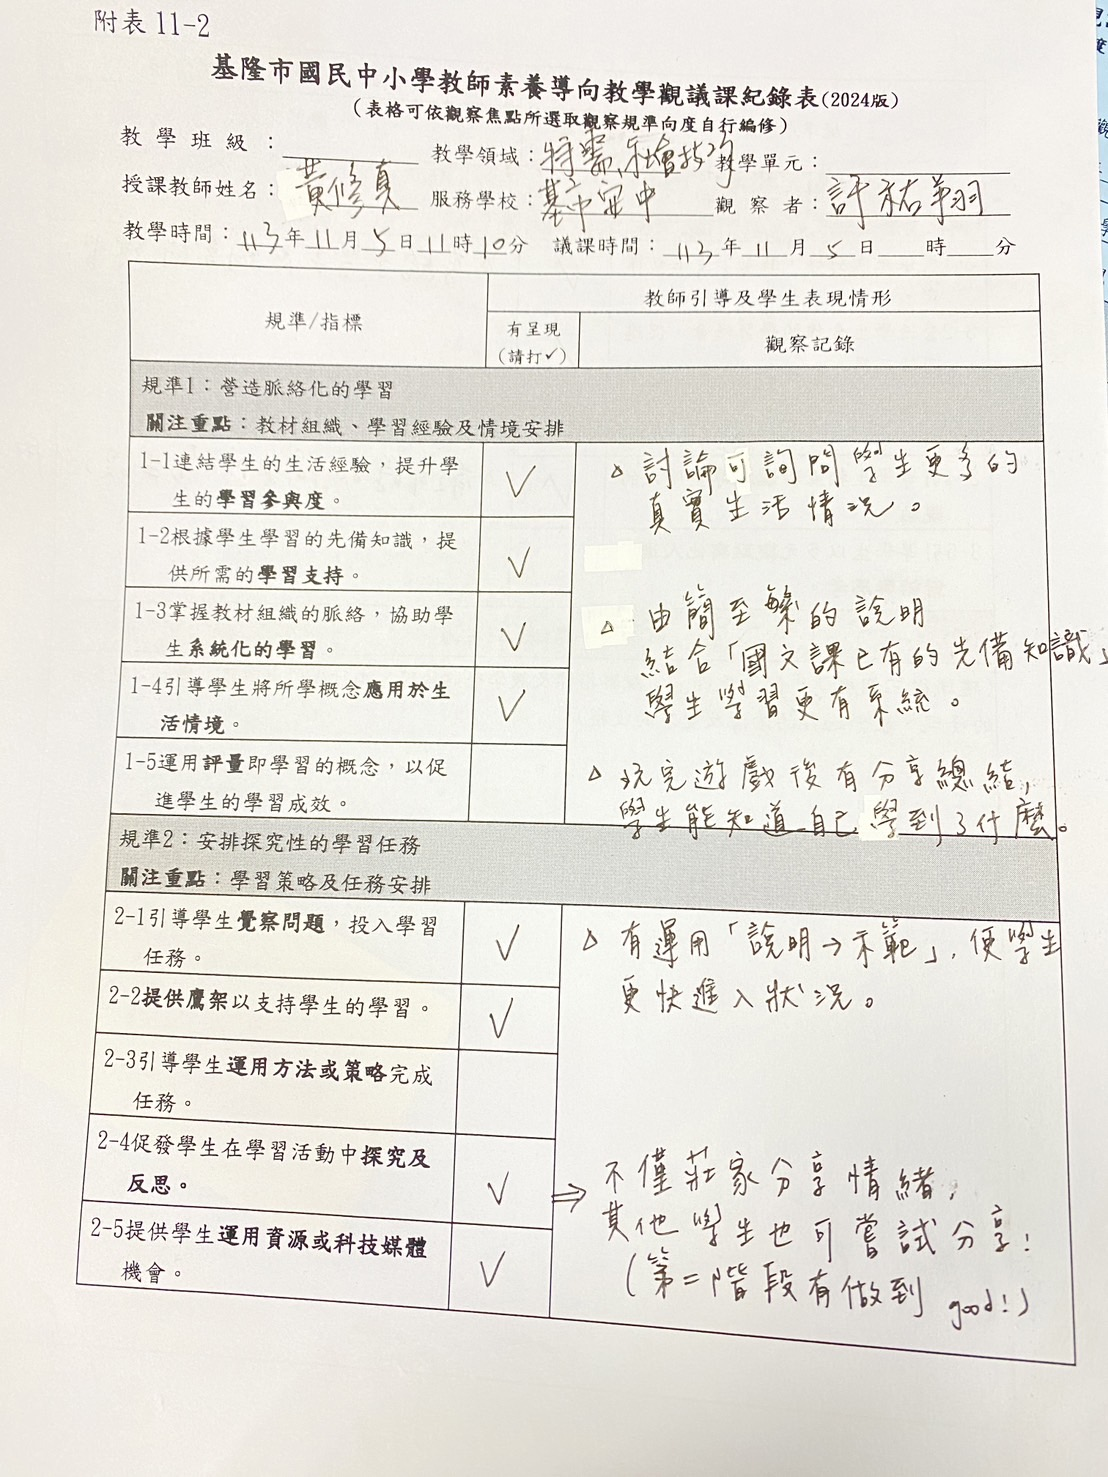 附表 11-2
基隆市國民中小學教師素養導向教學觀議課紀錄表(2024版)
(表格可依觀察焦點所選取觀察規準向度自行編修)
教學班級： 教學領域：特需,社會技巧 教學單元：
授課教師姓名：黃修真 服務學校：基市安中 觀察者：許祐菁羽
教學時間：113年11月5日11時10分 議課時間：113年11月5日 時 分
規準/指標
教師引導及學生表現情形
有呈現
(請打✓)
觀察記錄
規準1：營造脈絡化的學習
關注重點：教材組織、學習經驗及情境安排
1-1連結學生的生活經驗，提升學
生的學習參與度。
✓
△ 討論可詢問學生更多的
真實生活情況。
1-2根據學生學習的先備知識，提
供所需的學習支持。
✓
1-3掌握教材組織的脈絡，協助學
生系統化的學習。
✓
△ 由簡至繁的說明
結合「國文課已有的先備知識」
學生學習更有系統。
1-4引導學生將所學概念應用於生
活情境。
✓
1-5運用評量即學習的概念，以促
進學生的學習成效。
△ 玩完遊戲後有分享總結,
學生能知道自己學到了什麼。
規準2：安排探究性的學習任務
關注重點：學習策略及任務安排
2-1引導學生覺察問題，投入學習
任務。
✓
△ 有運用「說明→示範」, 使學生
更快進入狀況。
2-2提供鷹架以支持學生的學習。
✓
2-3引導學生運用方法或策略完成
任務。
2-4促發學生在學習活動中探究及
反思。
✓
⇒ 不僅莊家分享情緒,
其他學生也可嘗試分享!
(第二階段有做到 good!)
2-5提供學生運用資源或科技媒體
機會。
✓